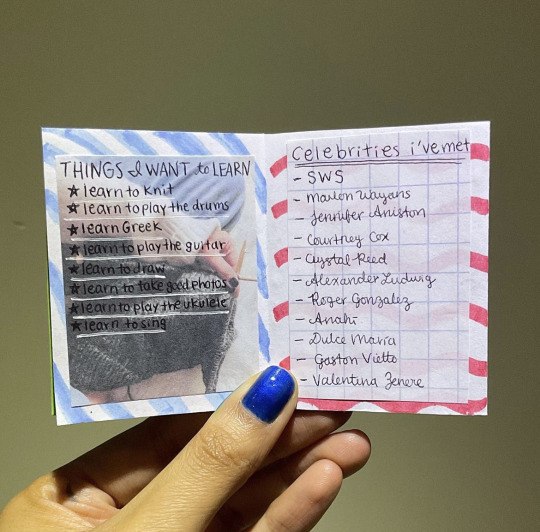 THINGS I WANT to LEARN
★ learn to knit
★ learn to play the drums
★ learn Greek
★ learn to play the guitar
★ learn to draw
★ learn to take good photos
★ learn to play the ukulele
★ learn to sing
Celebrities i've met
- SWS
- Marlon Wayans
- Jennifer Aniston
- Courtney Cox
- Crystal Reed
- Alexander Ludwig
- Roger Gonzalez
- Anahi
- Dulce Maria
- Gaston Vietto
- Valentina Zenere